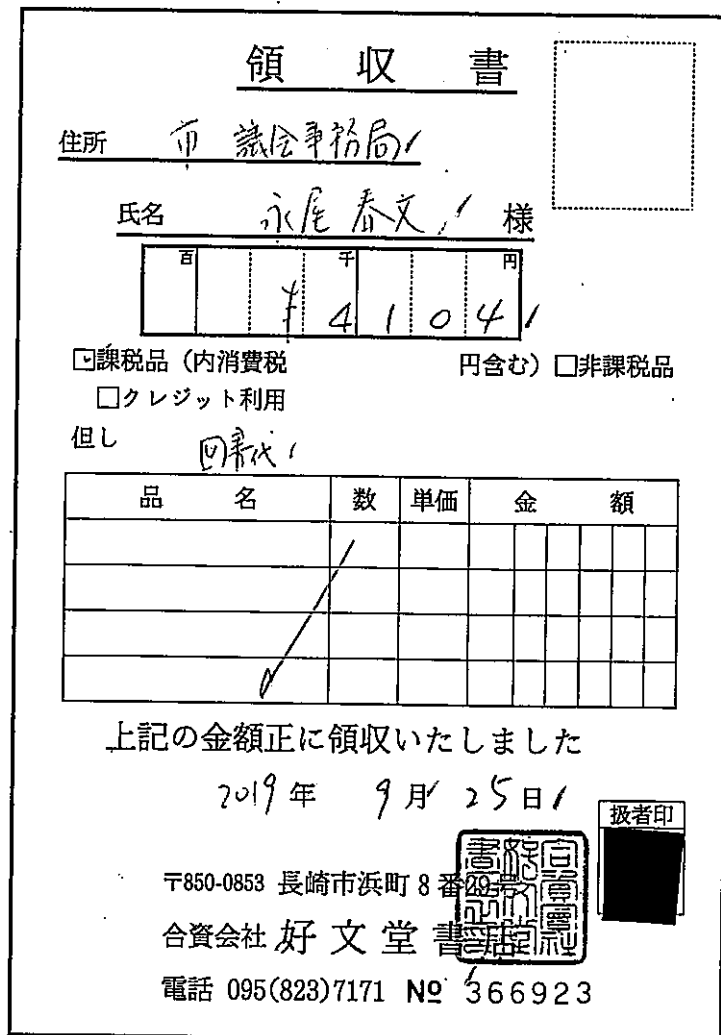 領収書
住所 市議会事務局
氏名 永尾春文 様
百 千 円
¥4104
課税品（内消費税 円含む）□非課税品
□クレジット利用
但し 図書代
品名 数 単価 金額
上記の金額正に領収いたしました
2019年 9月 25日
扱者印
〒850-0853 長崎市浜町8番29号
合資会社 好文堂書店
電話 095(823)7171 № 366923